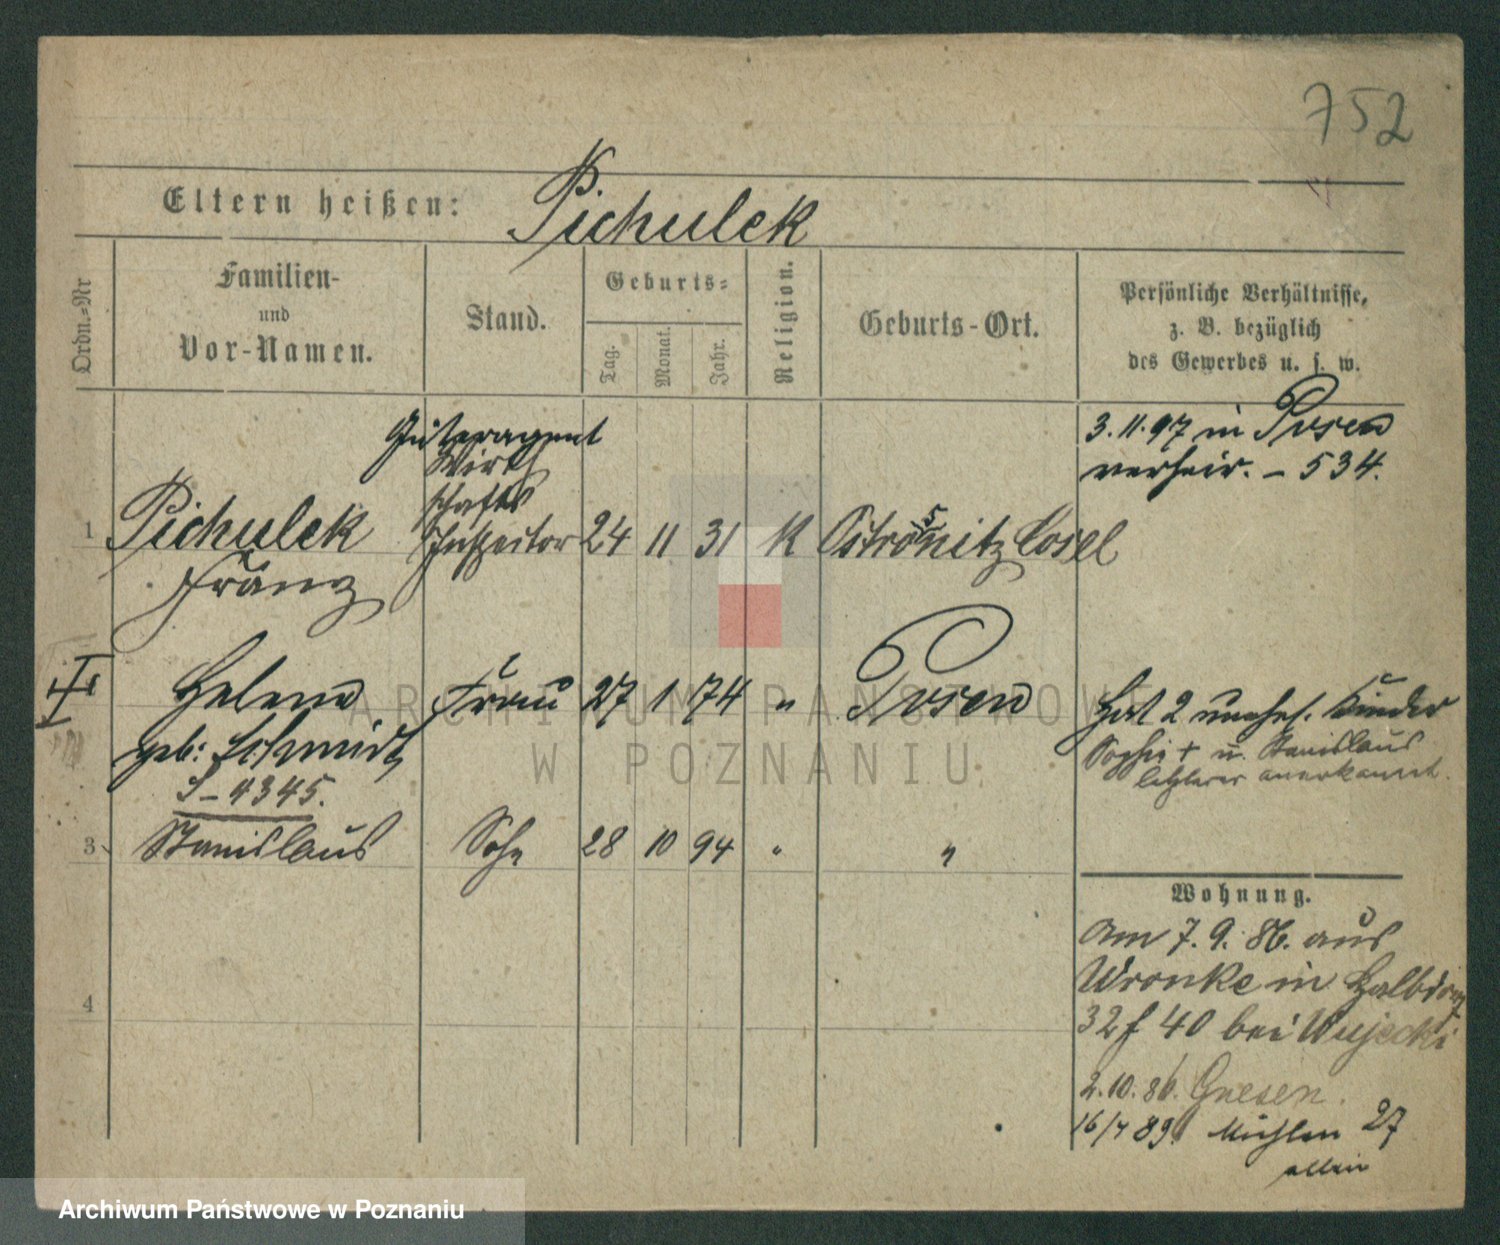 752
Eltern heißen: Pichulek
Ordn.=Nr
Familien-
und
Vor-Namen.
Stand.
Geburts=
Tag.
Monat.
Jahr.
Religion.
Geburts-Ort.
Persönliche Verhältnisse,
z. B. bezüglich
des Gewerbes u. s. w.
3. 11. 97 in Posen
verheir. – 534.
Güteragent
Wirth
schafts
Inspector
1 Pichulek 24 11 31 K Ostrosnitz Cosel
Franz
Helene Frau 27 1 74 " Posen
geb: Schmidt
S – 4345.
Hat 2 unehel. Kinder
Sophie + u. Stanislaus
letzterer anerkannt.
3 Stanislaus Sohn 28 10 94 " "
4
Wohnung.
Am 7. 9. 86. aus
Wronke in Halbdorf
32 f 40 bei Wujecki
2. 10. 86. Gnesen.
16/4 89. Mühlen 27
allein
ARCHIWUM PAŃSTWOWE
W POZNANIU
Archiwum Państwowe w Poznaniu